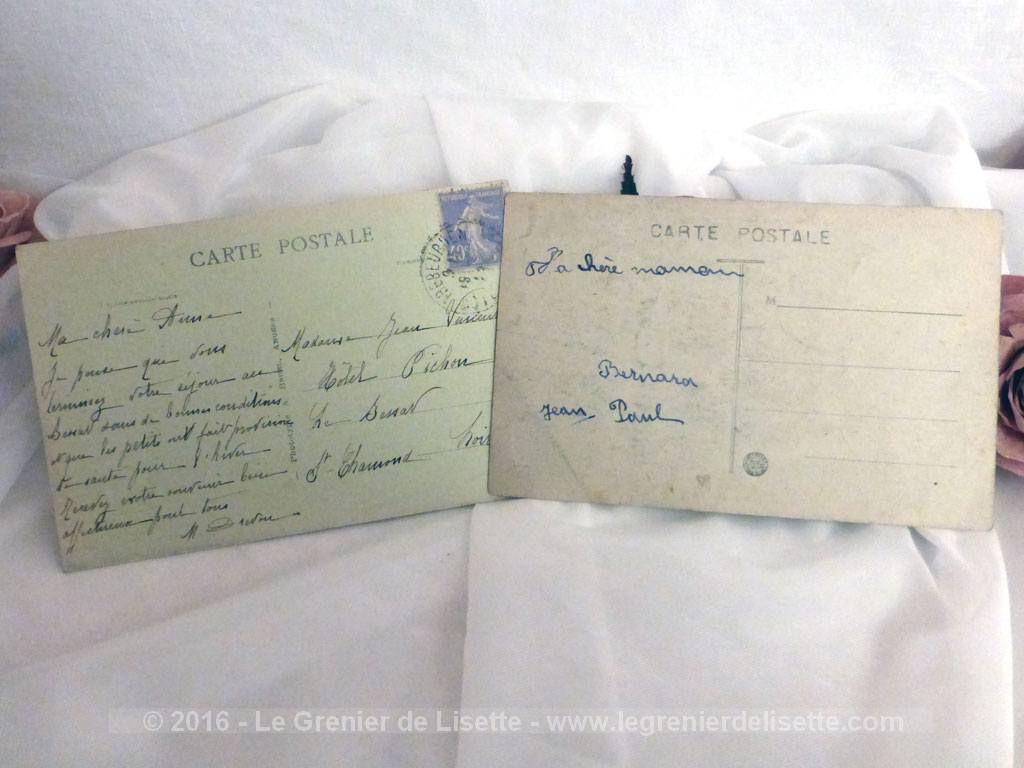 CARTE POSTALE
Ma chère Anna
Je pense que vous
terminez votre séjour au
Bessat dans de bonnes conditions
et que les petits ont fait provision
de santé pour l'hiver
Recevez notre souvenir bien
affectueux pour tous
M
Madame Jean
Hôtel Pichon
Le Bessat
St Chamond Loire
40c
CARTE POSTALE
A ma chère maman
Bernard
Jean Paul
M
© 2016 - Le Grenier de Lisette - www.legrenierdelisette.com